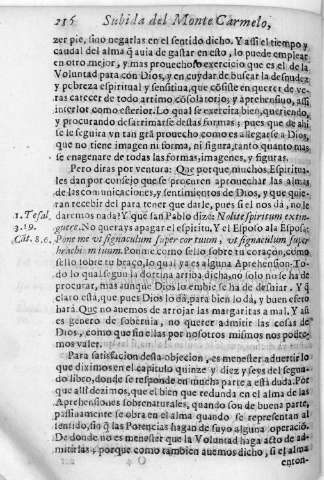 236 Subida del Monte Carmelo,
zer pie, sino negarlas en el sentido dicho. Y assi el tiempo y
caudal del alma q̃ auia de gastar en esto, lo puede emplear
en otro mejor, y mas prouechoso exercicio que es el de la
Voluntad para con Dios, y en cuydar de buscar la desnudez
y pobreza espiritual y sensitiua, que cõsiste en querer de ve-
ras carecer de todo arrimo cõsolatorio, y aprehensiuo, assi
interior como esterior. Lo qual se exercita bien, queriendo,
y procurando desarrimarse destas formas; pues que de ahi
se le seguira vn tan grã prouecho como es allegarse a Dios,
que no tiene imagen ni forma, ni figura, tanto quanto mas
se enagenare de todas las formas, imagenes, y figuras.
Pero diras por ventura: Que porque muchos Espiritua-
les dan por consejo que se procuren aprouechar las almas
de las comunicaciones, y sentimientos de Dios, y que quie-
ran recebir del para tener que darle, pues si el nos dá, no le
1. Tesal. daremos nada? Y que san Pablo dize: Nolite spiritum extin-
5.19. guere. No querays apagar el espiritu. Y el Esposo ala Esposa:
Cãt. 8.6. Pone me vt signaculum super cor tuum, vt signaculum super
brachium tuum. Ponme como sello sobre tu coraçon, como
sello sobre tu braço, lo qual ya es alguna Aprehension. To-
do lo qual segun la dotrina arriba dicha, no solo no se ha de
procurar, mas aunque Dios lo embie se ha de desuiar. Y q̃
claro está, que pues Dios lo dá, para bien lo dá, y buen efeto
hará. Que no auemos de arrojar las margaritas a mal. Y assi
es genero de soberuia, no querer admitir las cosas de
Dios, como que sin ellas por nosotros mismos nos podre-
mos valer.
Para satisfacion desta objecion, es menester aduertir lo
que diximos en el capitulo quinze y diez y seys del segun-
do libro, donde se responde en mucha parte a está duda. Por
que alli dezimos, que el bien que redunda en el alma de las
Aprehensiones sobrenaturales, quando son de buena parte,
passiuamente se obra en el alma quando se representan al
sentido, sin q̃ las Potencias hagan de suyo alguna operació.
De donde no es menester que la Voluntad haga acto de ad-
mitirlas; porque como tambien auemos dicho, si el alma
enton-